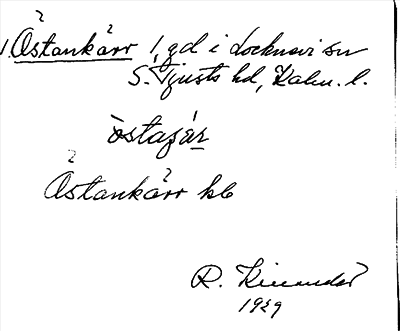 1. Östankärr 1, gd i Locknevi sn
S. Tjusts hd, Kalm. l.
östaʃǽr
Östankärr kb
R. Kinander
1929